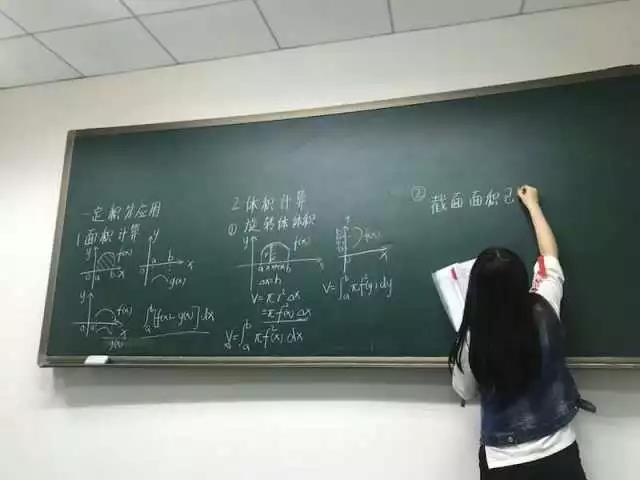 一定积分应用
1 面积计算
y f(x)
a b x
y
a b x
g(x)
y
f(x)
a b x
g(x)
∫ₐᵇ[f(x)-g(x)]dx
2 体积计算
① 旋转体体积
y f(x)
a x x+Δx b x
Δx
V=πr²Δx
=πf²(x)Δx
V=∫ₐᵇπf²(x)dx
f(y)
V=∫ₐᵇπf²(y)dy
② 截面面积已